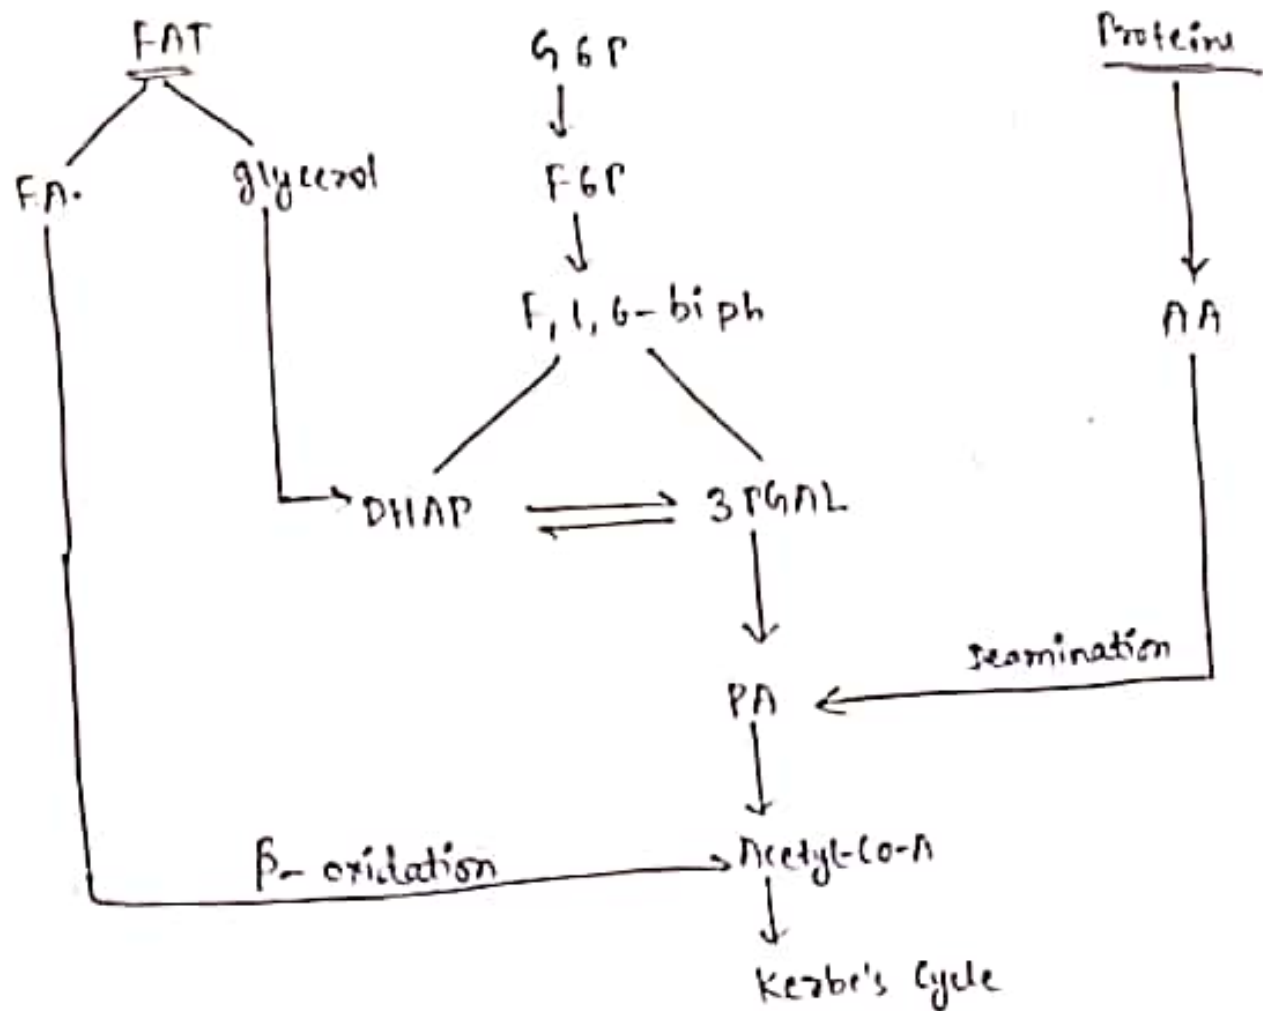 FAT
G6P
Proteins
FA.
glycerol
F6P
F, 1, 6-biph
AA
DHAP
3PGAL
deamination
PA
β- oxidation
Acetyl-Co-A
Kerbe's Cycle